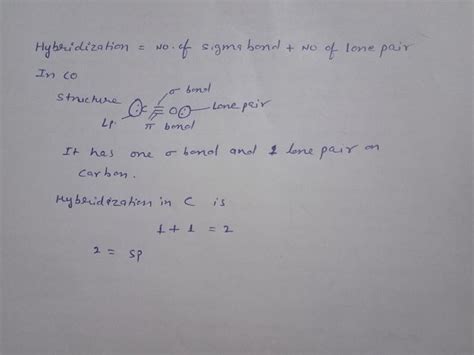 Hybridization = no. of sigma bond + no of lone pair
In CO
σ bond
Structure :C≡O: Lone pair
L.p. π bond
It has one σ bond and 1 lone pair on
carbon.
Hybridization in C is
1 + 1 = 2
2 = sp